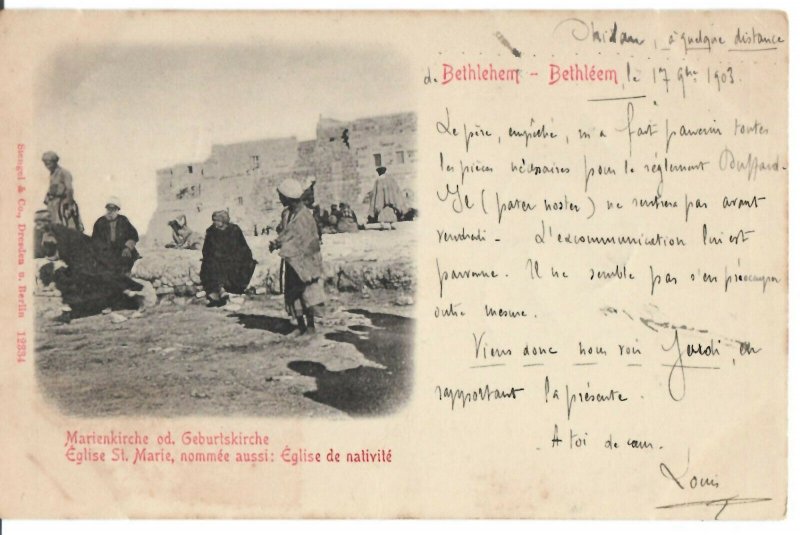 à quelque distance
de Bethlehem - Bethléem, le 17 9bre 1903.
Le père, empêché, m'a fait parvenir toutes
les pièces nécessaires pour le règlement
(pater noster) ne rentrera pas avant
vendredi - L'excommunication lui est
parvenue. Il ne semble pas s'en préoccuper
outre mesure.
Viens donc nous voir Jeudi, en
rapportant la présente.
A toi de cœur.
Louis
Stengel & Co., Dresden u. Berlin 12334
Marienkirche od. Geburtskirche
Église St. Marie, nommée aussi: Église de nativité